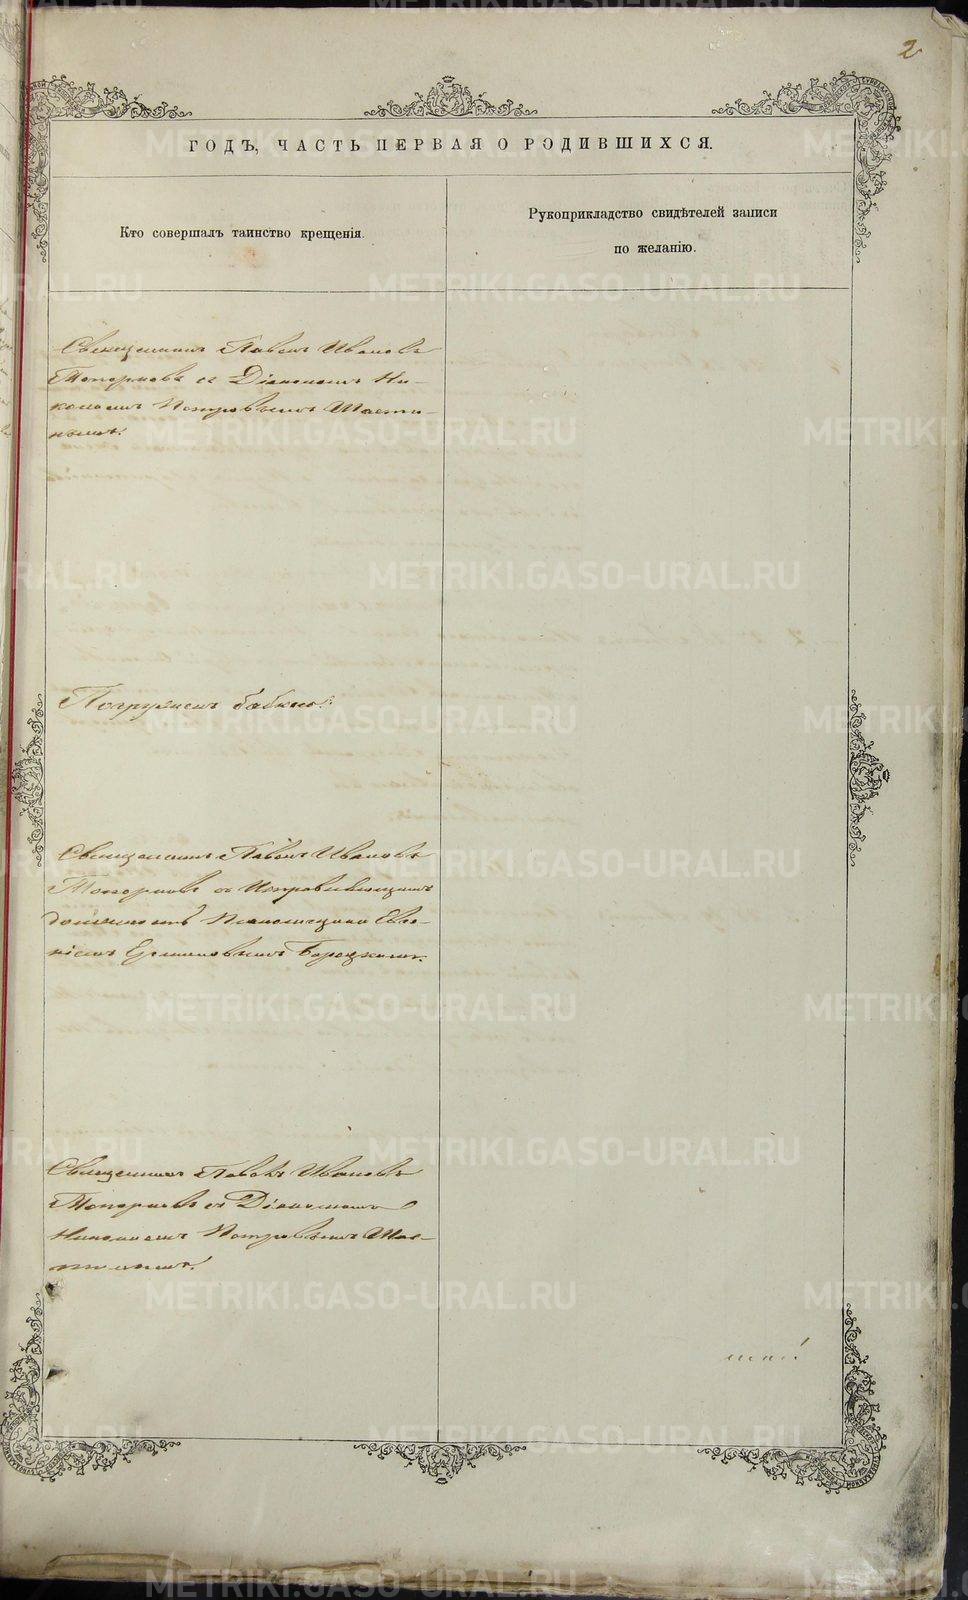 2
ГОДЪ, ЧАСТЬ ПЕРВАЯ О РОДИВШИХСЯ.
Кто совершалъ таинство крещенія.
Рукоприкладство свидѣтелей записи
по желанію.
Священникъ Павелъ Ивановъ
Топорковъ съ Діакономъ Ни-
колаемъ Петровымъ
Погруженъ бабкою.
Священникъ Павелъ Ивановъ
Топорковъ съ Исправляющимъ
должность Псаломщика Евге-
ніемъ
Священникъ Павелъ Ивановъ
Топорковъ съ Діакономъ
Николаемъ Петровымъ
METRIKI.GASO-URAL.RU